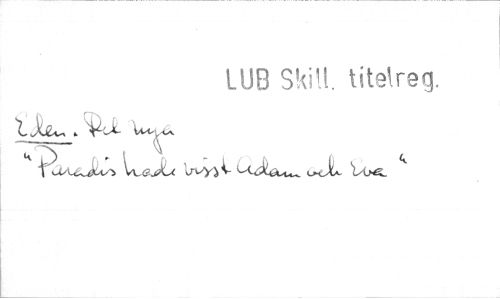 LUB Skill. titelreg.
Eden. Det nya
"Paradis hade visst Adam och Eva"